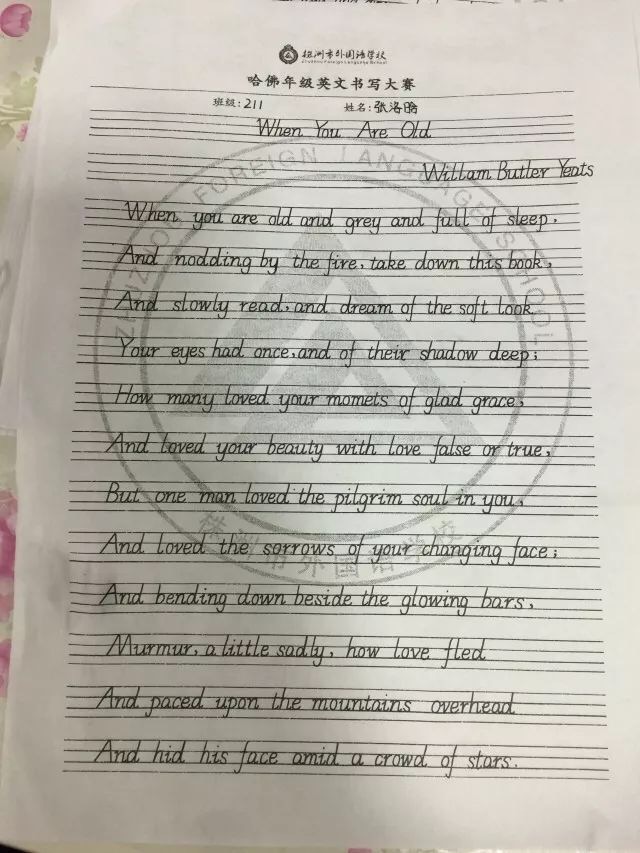 株洲市外国语学校
Zhuzhou Foreign Language School
哈佛年级英文书写大赛
班级:211 姓名:张洛晗
When You Are Old
Willam Butler Yeats
When you are old and grey and full of sleep,
And nodding by the fire, take down this book,
And slowly read, and dream of the soft look
Your eyes had once, and of their shadow deep;
How many loved your momets of glad grace,
And loved your beauty with love false or true,
But one man loved the pilgrim soul in you,
And loved the sorrows of your changing face;
And bending down beside the glowing bars,
Murmur, a little sadly, how love fled
And paced upon the mountains overhead
And hid his face amid a crowd of stars.
ZHUZHOU FOREIGN LANGUAGE SCHOOL
株洲市外国语学校